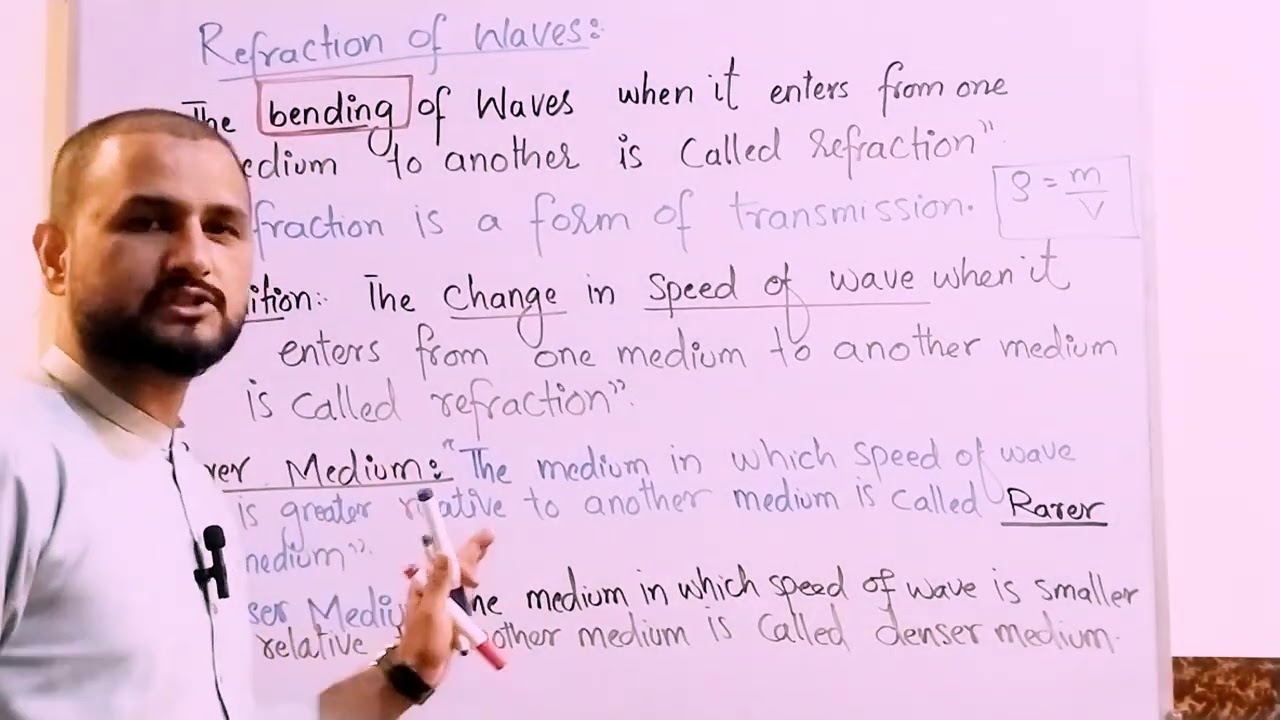 Refraction of Waves:
The bending of Waves when it enters from one
edium to another is Called refraction"
fraction is a form of transmission.
ρ = m/V
ition: The Change in Speed of wave when it
enters from one medium to another medium
is Called refraction".
rer Medium: "The medium in which speed of wave
is greater relative to another medium is called Rarer
medium".
ser Mediu he medium in which speed of wave is smaller
relative other medium is Called denser medium.